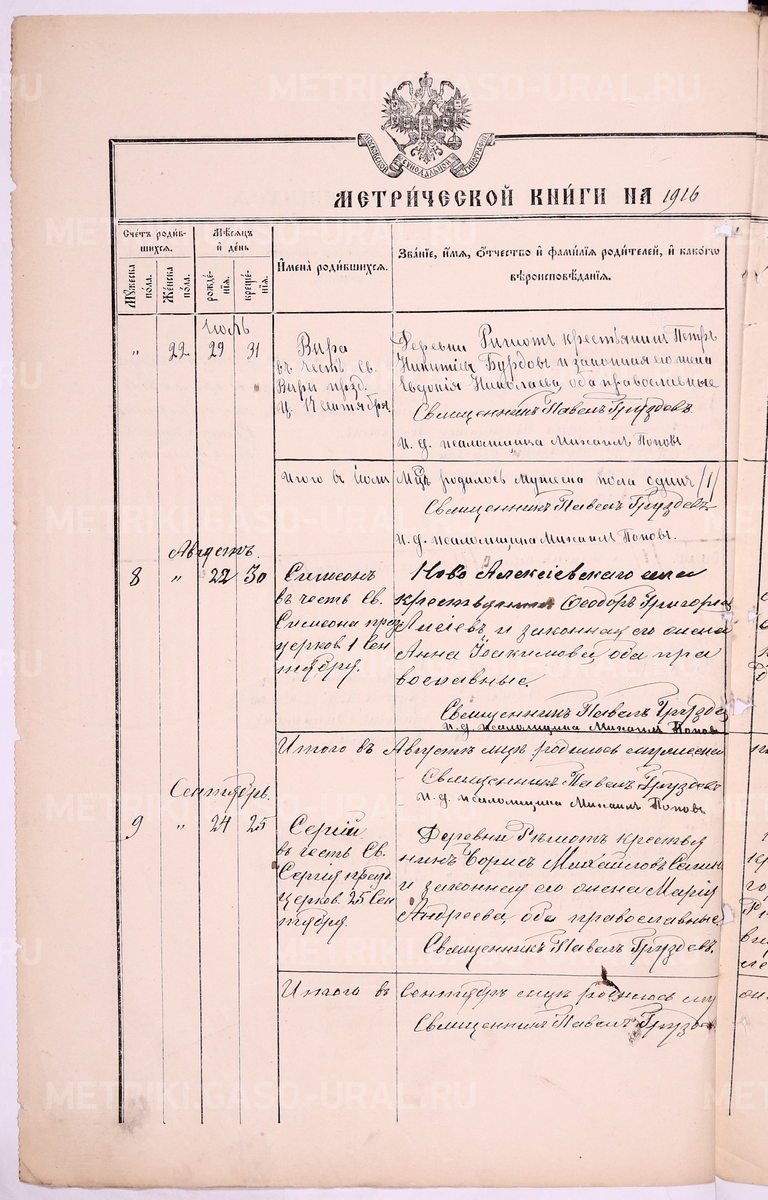 МОСКОВСКОЙ СѴНОДАЛЬНОЙ ТИПОГРАФІИ
МЕТРИ́ЧЕСКОЙ КНИ́ГИ НА 1916
Сче́тъ роди́в-
шихся.
Мꙋ́жеска по́ла.
Же́нска по́ла.
Мѣ́сяцъ
и҆ де́нь
рожде́нїѧ.
креще́нїѧ.
И҆мена̀ роди́вшихся.
Зва́нїе, и҆́мѧ, ѻ҆́тчество и҆ фами́лїѧ роди́телей, и҆ како́гѡ
вѣроисповѣ́данїѧ.
Іюль
" 22 29 31
Вѣра
въ честь Св.
Вѣры празд.
ц. 17 сентября.
Деревни крестьянинъ Петръ
Никитинъ Бурдовъ и законная его жена
Евдокія Николаева, оба православные
Священникъ Павелъ Груздевъ
и. д. псаломщика Михаилъ Поповъ
Итого въ Іюлѣ
Мцѣ родилось мужеска пола одинъ /1/
Священникъ Павелъ Груздевъ
и. д. псаломщика Михаилъ Поповъ.
Августъ.
8 " 22 30
Симеонъ
въ честь Св.
Симеона праз
церков. 1 Сен
тября.
Ново Алексіевскаго села
крестьянинъ Ѳеодоръ Григорьев
и законная его жена
Анна Іоакимова, оба пра
вославные.
Священникъ Павелъ Груздев
и. д. псаломщика Михаилъ Поповъ
Итого въ Августѣ мцѣ родилось мужеска
Священникъ Павелъ Груздевъ
и. д. псаломщика Михаилъ Поповъ
Сентябрь.
9 " 24 25
Сергій
въ честь Св.
Сергія празд
церков. 25 Сен
тября.
Деревни крестья
нинъ Борисъ Михайловъ
и законная его жена Марія
Андреева, оба православные.
Священникъ Павелъ Груздевъ.
Итого въ Сентябрѣ мцѣ родилось му
Священникъ Павелъ Груздев
METRIKI.GASO-URAL.RU